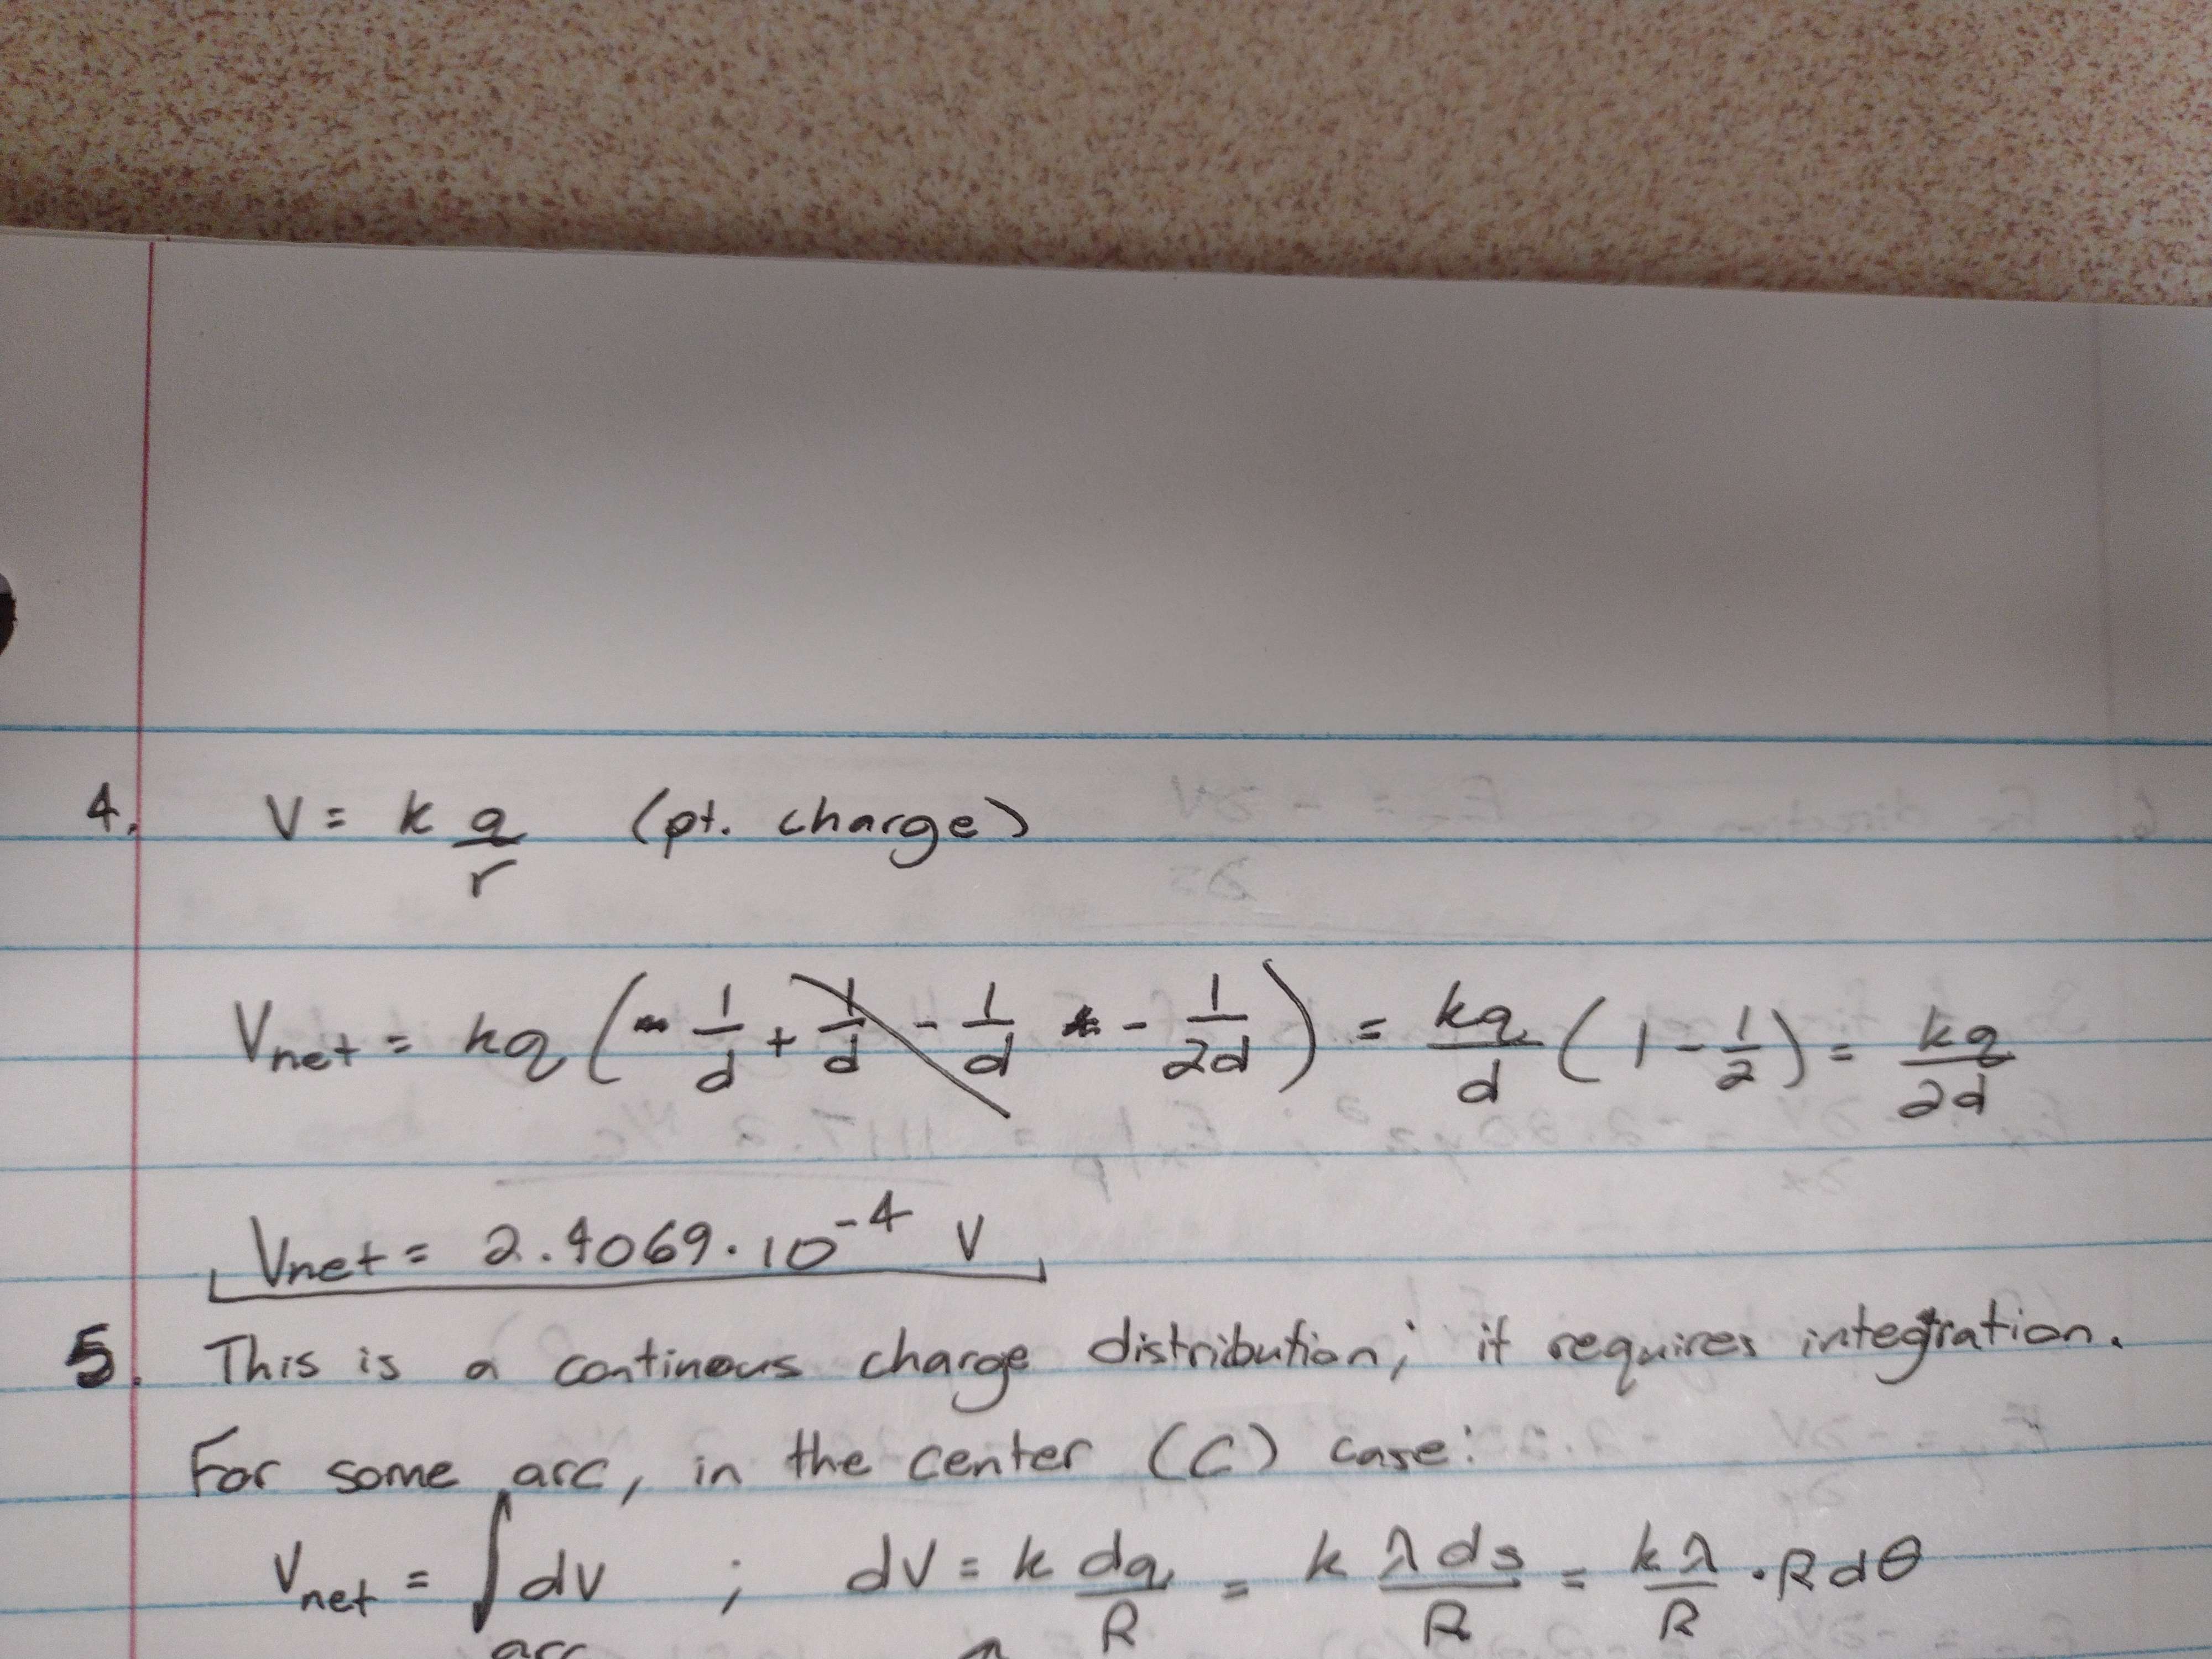 4. V = k q/r (pt. charge)
Vnet = kq (- 1/d + 1/d - 1/d - 1/2d) = kq/d (1 - 1/2) = kq/2d
Vnet = 2.4069·10^-4 V
5. This is a continous charge distribution; it requires integration.
For some arc, in the center (C) case:
Vnet = ∫arc dV ; dV = k dq/R = k λds/R = kλ/R · R dθ